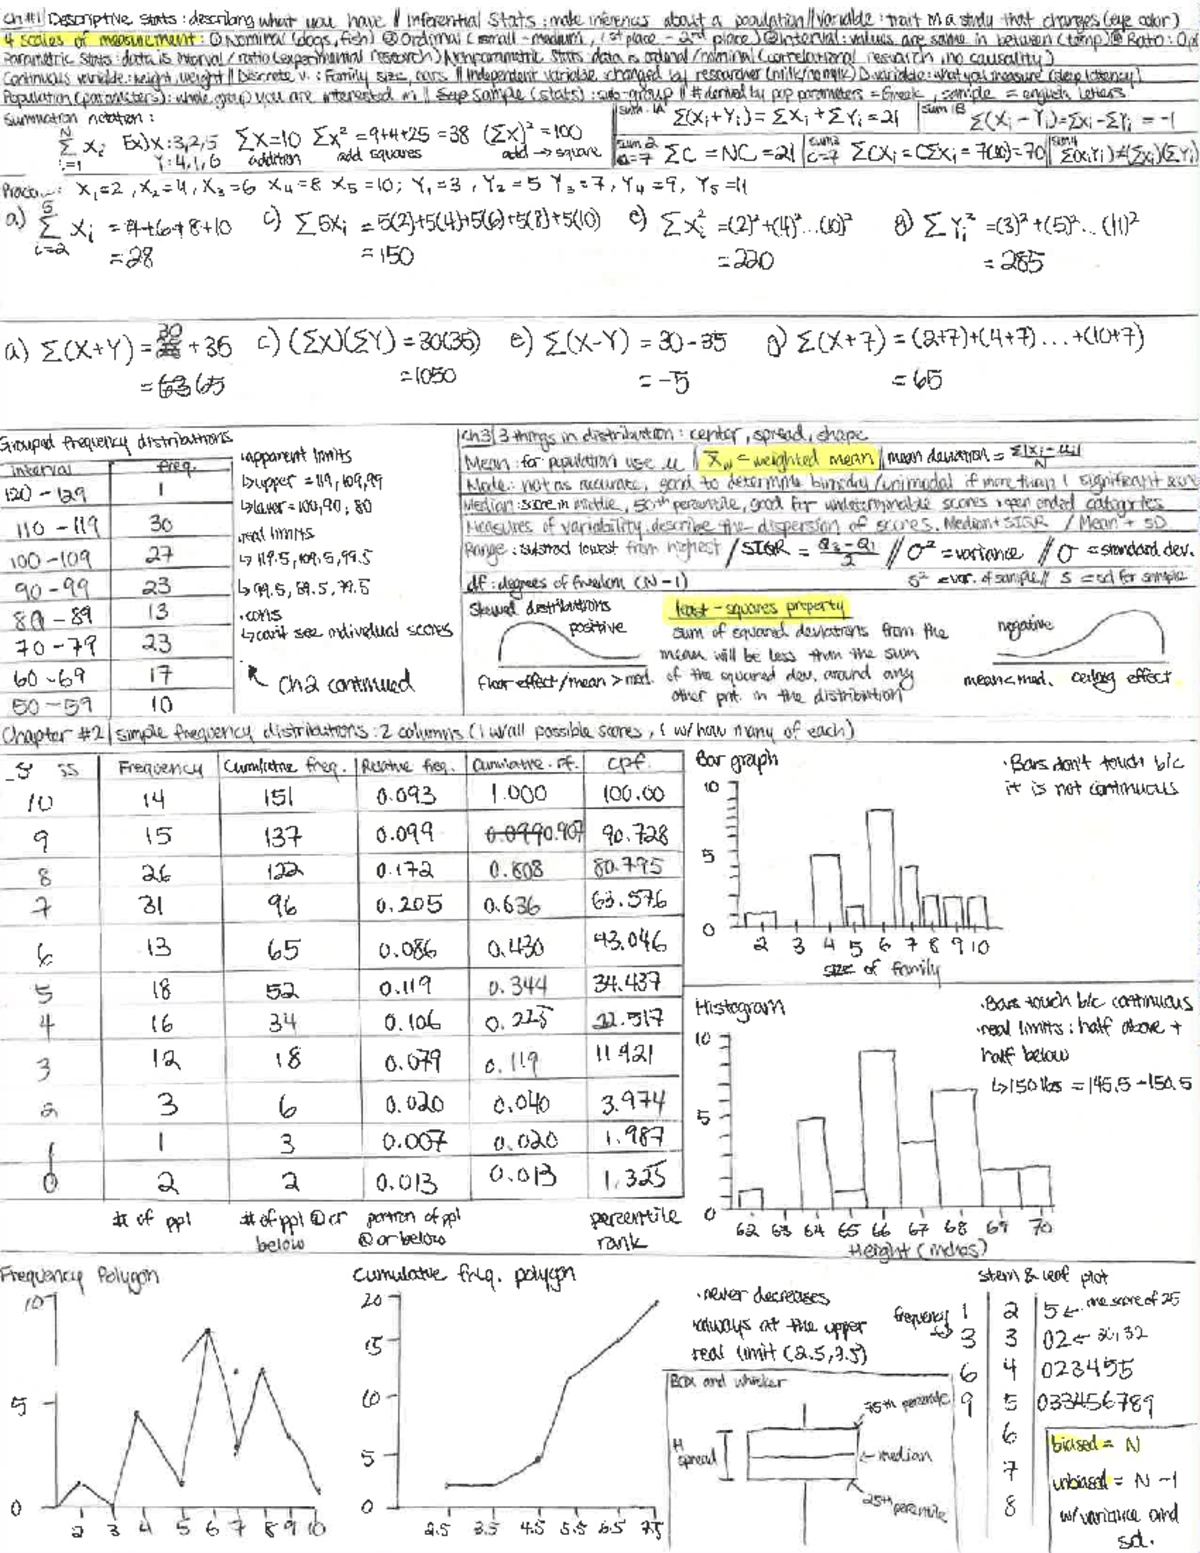 Ch #1 | Descriptive Stats: describing what you have || Inferential Stats: make inferences about a population || Variable: trait in a study that changes (eye color)
4 scales of measurement: ① Nominal (dogs, fish) ② Ordinal (small-medium, 1st place - 2nd place) ③ Interval: values are same in between (temp) ④ Ratio:
Parametric Stats: data is interval/ratio (experimental research) Nonparametric Stats data is ordinal/nominal (correlational research, no causality)
Continuous variable: height, weight || Discrete v.: Family size, cars || Independent variable changed by researcher (milk/no milk) D.variable: what you measure (sleep latency)
Population (parameters): whole group you are interested in || Sample (stats): sub-group || # derived by pop parameters = Greek, sample = english letters
Summation notation:
N Σ i=1 Xi Ex) X: 3,2,5 ΣX=10 ΣX² = 9+4+25 = 38 (ΣX)² = 100
Y: 4,1,6 addition add squares add → square
Sum. 1A Σ(Xi+Yi) = ΣXi + ΣYi = 21 | Sum 1B Σ(Xi - Yi) = ΣXi - ΣYi = -1
Sum 2 C=7 ΣC = NC = 21 | Sum 3 C=7 ΣCXi = CΣXi = 7(10) = 70 | Sum 4 Σ(XiYi) ≠ (ΣXi)(ΣYi)
X1=2, X2=4, X3=6 X4=8 X5=10; Y1=3, Y2=5 Y3=7, Y4=9, Y5=11
a) 5 Σ i=2 Xi = 4+6+8+10 = 28
c) Σ5Xi = 5(2)+5(4)+5(6)+5(8)+5(10) = 150
e) ΣXi² = (2)²+(4)²...(10)² = 220
g) ΣYi² = (3)²+(5)²...(11)² = 285
a) Σ(X+Y) = 30 + 35 = 65
c) (ΣX)(ΣY) = 30(35) = 1050
e) Σ(X-Y) = 30-35 = -5
g) Σ(X+7) = (2+7)+(4+7)...+(10+7) = 65
Grouped frequency distributions
interval freq.
120-129 1
110-119 30
100-109 27
90-99 23
80-89 13
70-79 23
60-69 17
50-59 10
·apparent limits
↳upper = 119, 109, 99
↳lower = 100, 90, 80
·real limits
↳119.5, 109.5, 99.5
↳99.5, 89.5, 79.5
·cons
↳can't see individual scores
Ch2 continued
Ch3| 3 things in distribution: center, spread, shape
Mean: for population use μ | X̄w = weighted mean | mean deviation = Σ|Xi-μi| / N
Mode: not as accurate, good to determine bimodal/unimodal if more than 1 significant score
Median: score in middle, 50th percentile, good for undeterminable scores + open ended categories
Measures of variability: describe the dispersion of scores. Median + SIQR / Mean + SD
Range: subtract lowest from highest / SIQR = Q3-Q1 / 2 // σ² = variance // σ = standard dev.
df: degrees of freedom (N-1) s² = var. of sample // s = sd for sample
Skewed distributions
positive
Floor effect/mean > med.
least-squares property
sum of squared deviations from the
mean will be less than the sum
of the squared dev. around any
other pnt. in the distribution
negative
mean<med. ceiling effect
Chapter #2 | simple frequency distributions: 2 columns (1 w/all possible scores, 1 w/ how many of each)
Frequency Cumulative freq. Relative freq. Cumulative. rf. cpf.
10 14 151 0.093 1.000 100.00
9 15 137 0.099 0.907 90.728
8 26 122 0.172 0.808 80.795
7 31 96 0.205 0.636 63.576
6 13 65 0.086 0.430 43.046
5 18 52 0.119 0.344 34.437
4 16 34 0.106 0.225 22.517
3 12 18 0.079 0.119 11.921
2 3 6 0.020 0.040 3.974
1 1 3 0.007 0.020 1.987
0 2 2 0.013 0.013 1.325
# of ppl
# of ppl @ or below
portion of ppl @ or below
percentile rank
Bar graph
·Bars don't touch b/c
it is not continuous
10
5
0
2 3 4 5 6 7 8 9 10
size of family
Histogram
·Bars touch b/c continuous
·real limits: half above +
half below
↳150 lbs = 145.5-150.5
10
5
0
62 63 64 65 66 67 68 69 70
Height (inches)
Frequency Polygon
10
5
0
2 3 4 5 6 7 8 9 10
Cumulative freq. polygon
20
15
10
5
0
2.5 3.5 4.5 5.5 6.5 7.5
·never decreases
·always at the upper
real limit (2.5, 3.5)
Box and whisker
H spread
75th percentile
median
25th percentile
stem & leaf plot
frequency
1 2 5 ← one score of 25
3 3 02 ← 30, 32
6 4 023455
9 5 033456789
6
7
8
biased = N
unbiased = N-1
w/variance and
sd.